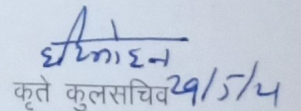 कृते कुलसचिव 29/5/14